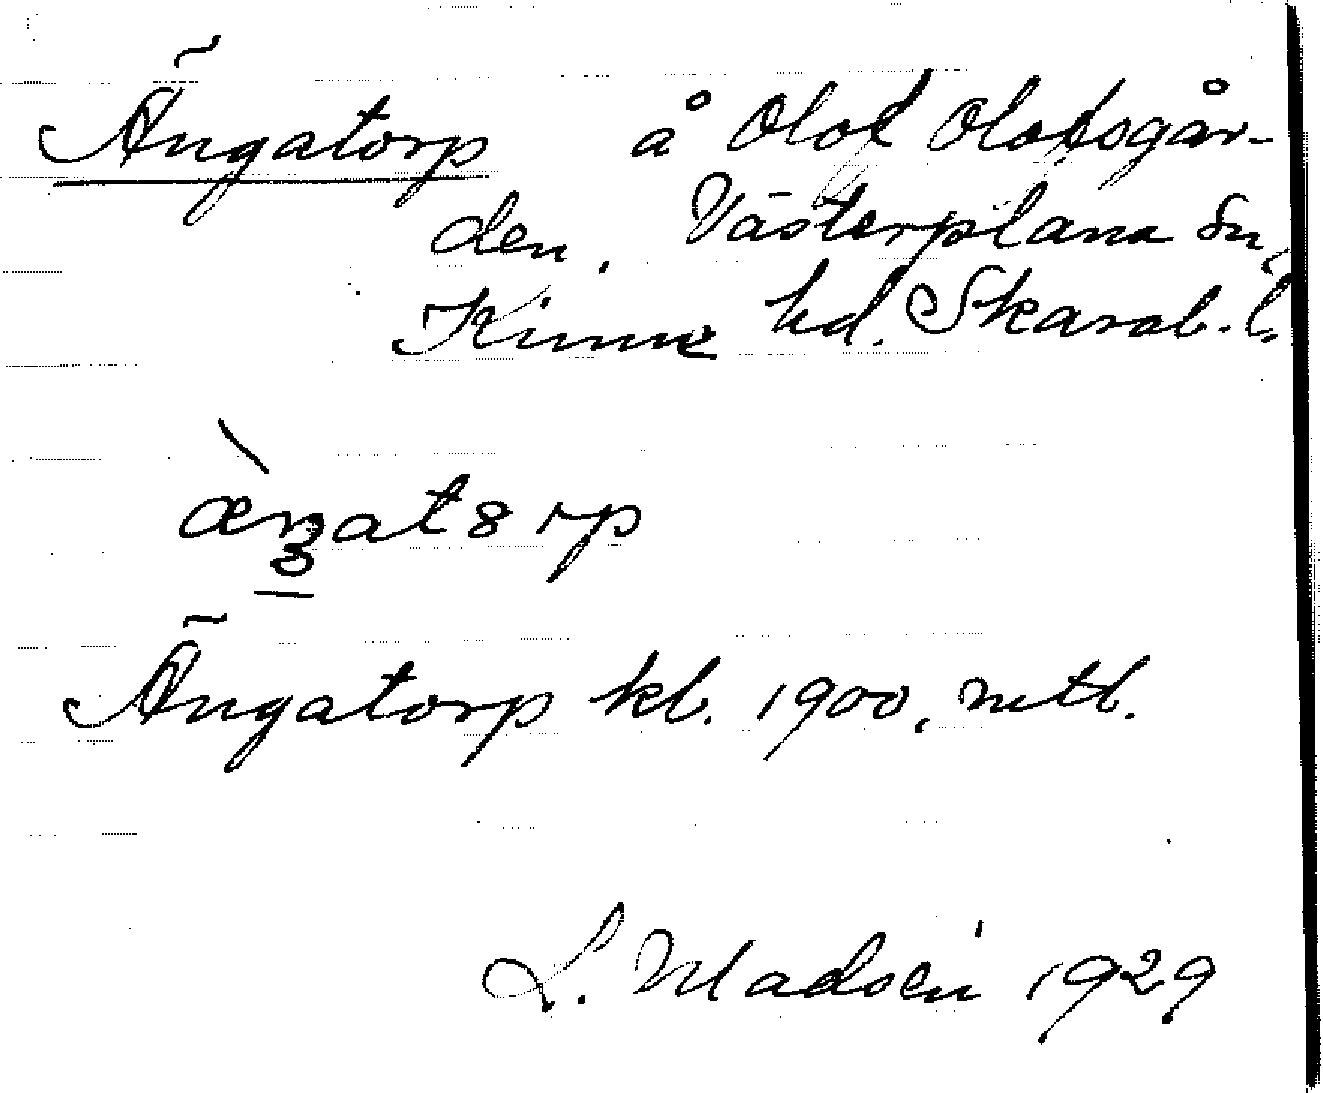 Ängatorp å Olof Olofsgår-
den, Västerplana Sn,
Kinne hd. Skarab. l.
Ängatorp kb. 1900, mtl.
L. Madsén 1929